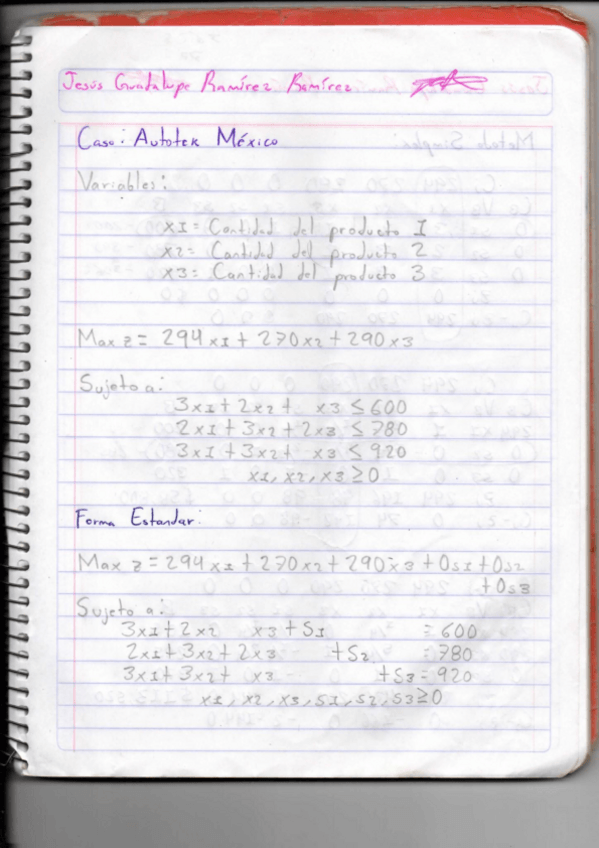 Jesús Guadalupe Ramírez Ramírez
Caso: Autotek México
Variables:
x1= Cantidad del producto 1
x2= Cantidad del producto 2
x3= Cantidad del producto 3
Max z= 294x1+270x2+290x3
Sujeto a:
3x1+2x2+ x3≤600
2x1+3x2+2x3≤780
3x1+3x2+ x3≤920
x1,x2,x3≥0
Forma Estandar:
Max z=294x1+270x2+290x3+0s1+0s2
+0s3
Sujeto a:
3x1+2x2 x3+S1 =600
2x1+3x2+2x3 +S2 =780
3x1+3x2+ x3 +S3=920
x1,x2,x3,S1,S2,S3≥0